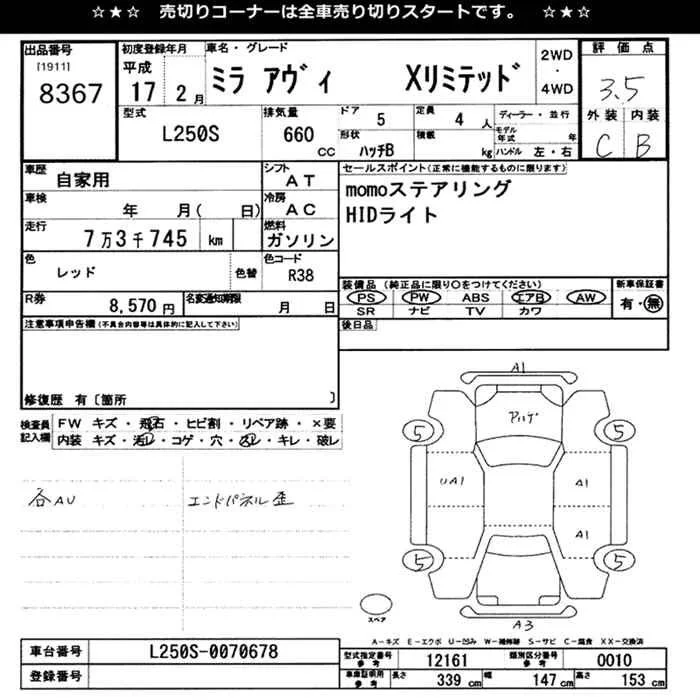 ☆★☆ 売切りコーナーは全車売り切りスタートです。 ☆★☆
出品番号 [1911] 8367
初度登録年月 平成 17 2月
車名・グレード ミラ アヴィ Xリミテッド
2WD ・ 4WD
評価点 3.5
外装 内装
C B
型式 L250S
排気量 660 cc
ドア 5
形状 ハッチB
定員 4 人
積載 kg
ディーラー・並行
モデル年式 年
ハンドル 左・右
車歴 自家用
シフト AT
車検 年 月( 日)
冷房 AC
走行 7万3千745 km
燃料 ガソリン
色 レッド 色替
色コード R38
R券 8,570円
名変通知期限 月 日
セールスポイント(正常に機能するものに限ります)
momoステアリング
HIDライト
装備品(純正品に限り○をつけてください)
PS PW ABS エアB AW
SR ナビ TV カワ
新車保証書
有・無
後日品
注意事項申告欄(不具合内容等は具体的に記入して下さい)
修復歴 有〔箇所 〕
検査員記入欄
FW キズ・飛石・ヒビ割・リペア跡・×要
内装 キズ・汚レ・コゲ・穴・スレ・キレ・破レ
各AU
エンドパネル歪
A1
5 5
UA1 A1
A1
5 5
スペア
A3
A-キズ E-エクボ U-凹み W-補修跡 S-サビ C-腐食 XX-交換済
車台番号 L250S-0070678
登録番号
型式指定番号 参考 12161
類別区分番号 参考 0010
車庫証明用 参考 長さ 339 cm 幅 147 cm 高さ 153 cm